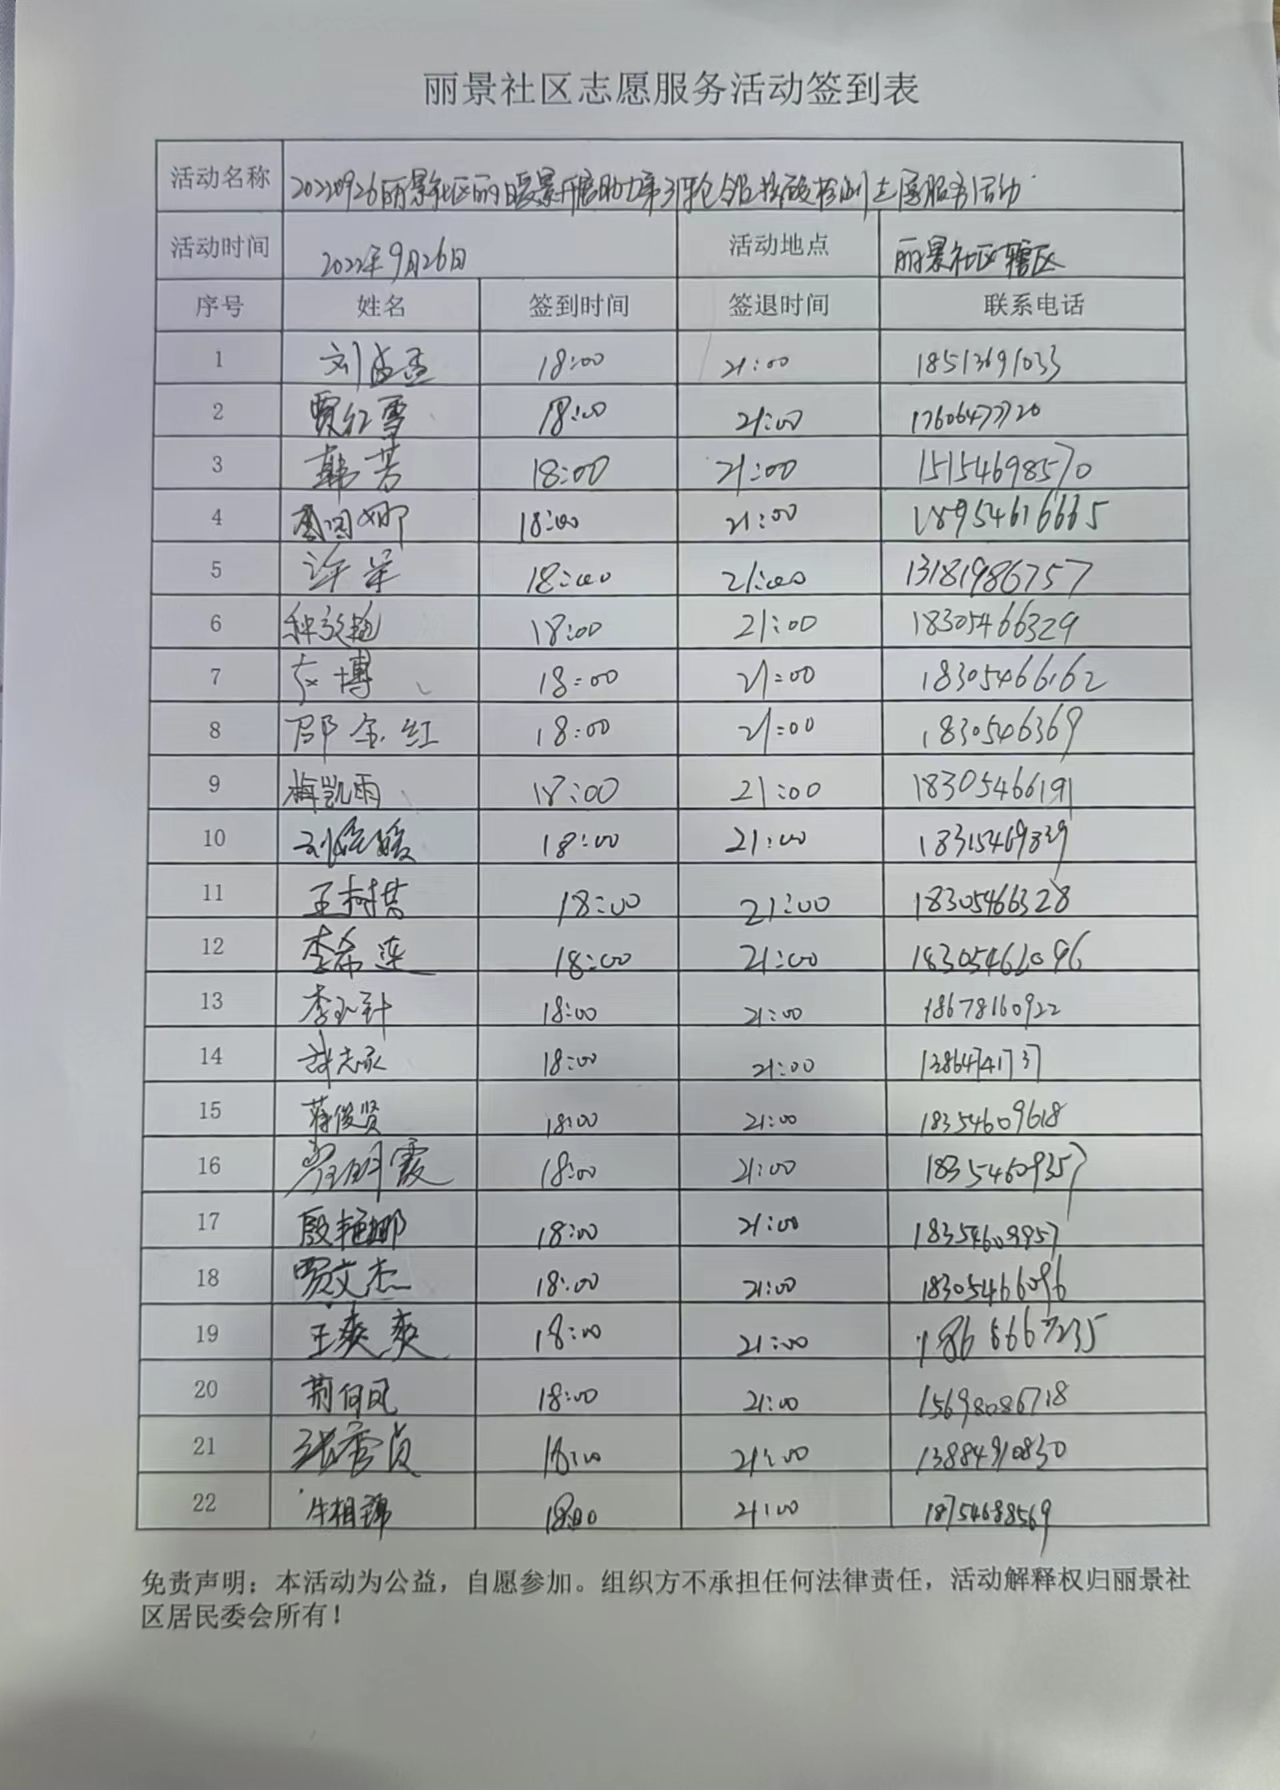 丽景社区志愿服务活动签到表
活动名称 20220926丽景社区丽暖景开展助力第31轮全员核酸检测志愿服务活动
活动时间 2022年9月26日 活动地点 丽景社区辖区
序号 姓名 签到时间 签退时间 联系电话
1 刘孟孟 18:00 21:00 18513691033
2 贾红雪 18:00 21:00 17606477720
3 韩芳 18:00 21:00 15154698570
4 18:00 21:00 18954616665
5 许军 18:00 21:00 13181986757
6 18:00 21:00 18305466329
7 博 18:00 21:00 18305466162
8 邵金红 18:00 21:00 1830546369
9 梅凯雨 18:00 21:00 18305466191
10 18:00 21:00 18315469839
11 王树其 18:00 21:00 18305466328
12 李希莲 18:00 21:00 18305462096
13 李 18:00 21:00 18678160922
14 18:00 21:00 13864741737
15 蒋俊贤 18:00 21:00 18354609618
16 霞 18:00 21:00 18354609357
17 殷艳娜 18:00 21:00 18354609957
18 贾文杰 18:00 21:00 18305466096
19 王爽爽 18:00 21:00 18666667235
20 荆何风 18:00 21:00 15698086718
21 张秀贞 18:00 21:00 13884910830
22 牛相锦 18:00 21:00 18754688569
免责声明：本活动为公益，自愿参加。组织方不承担任何法律责任，活动解释权归丽景社
区居民委会所有！